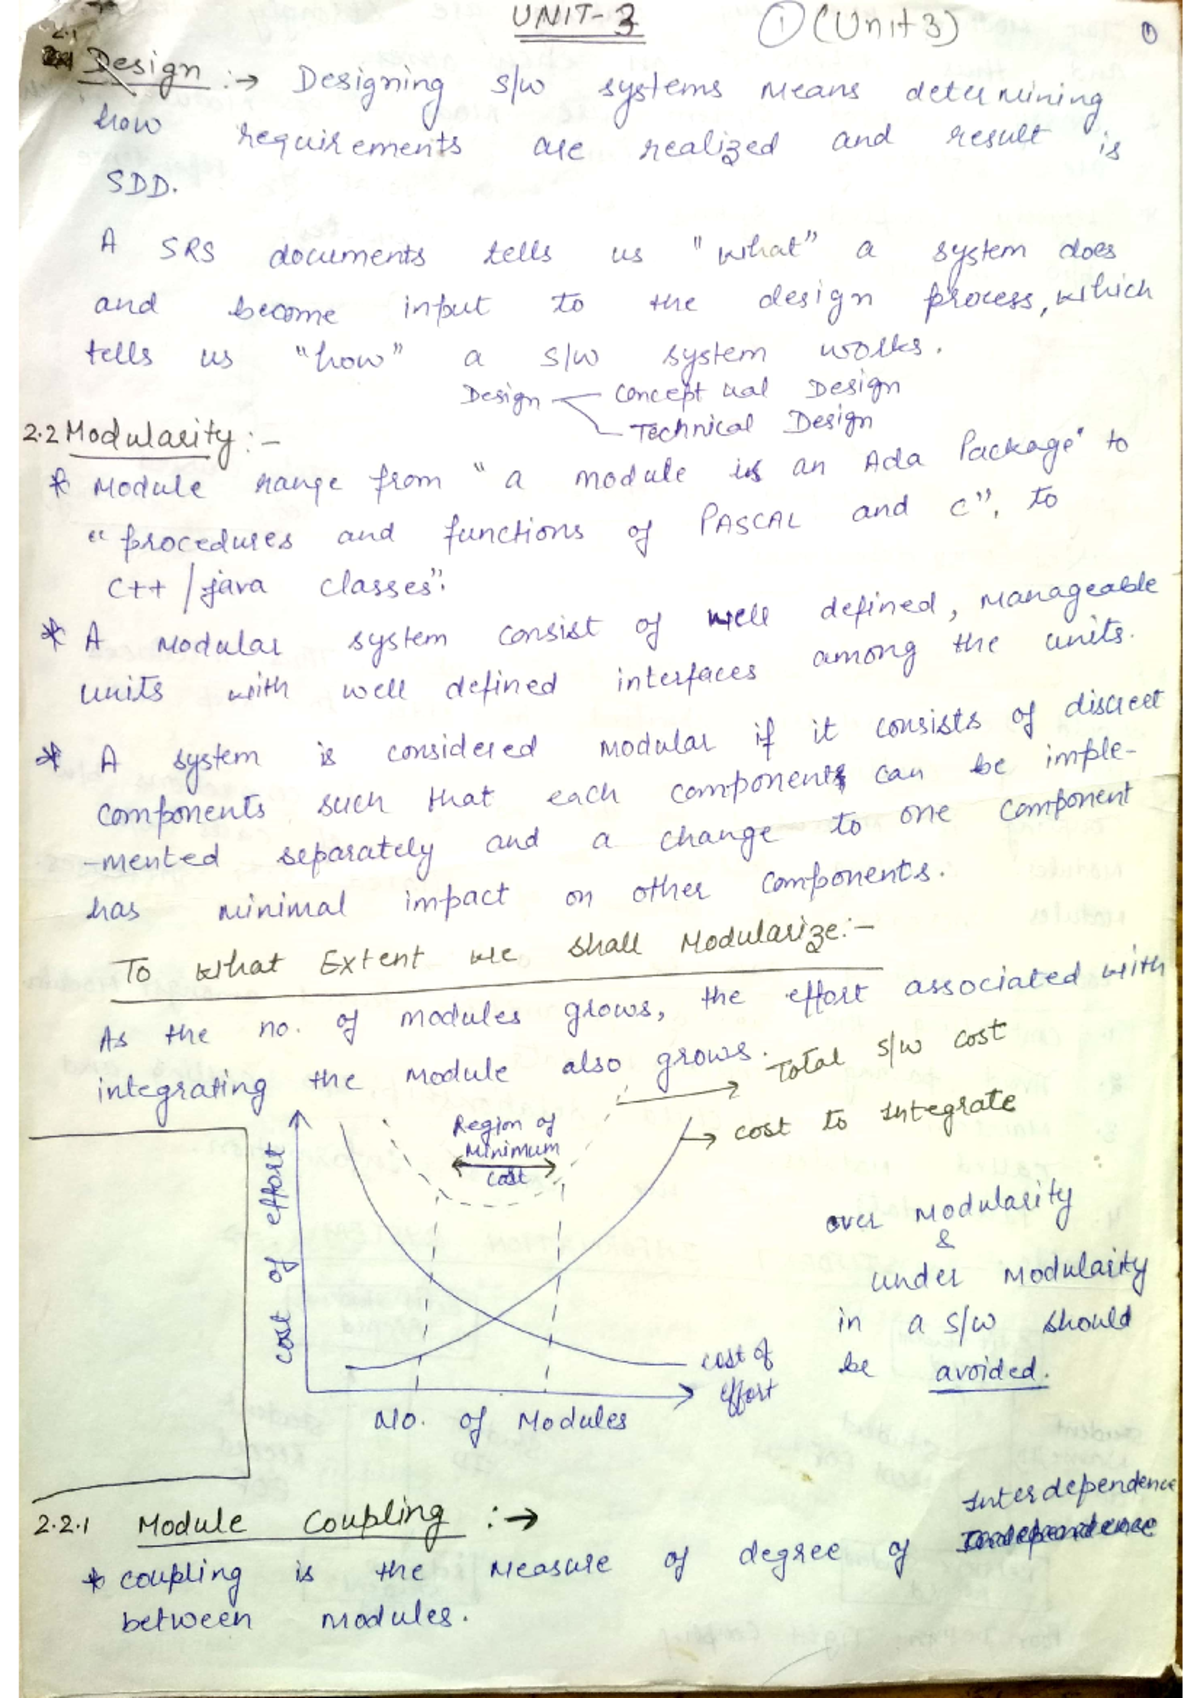 UNIT-3 ① (Unit 3) ①
2.1
Design :→ Designing s/w systems means determining
how requirements are realized and result is
SDD.
A SRS documents tells us "what" a system does
and become input to the design process, which
tells us "how" a s/w system works.
Design — Conceptual Design
Technical Design
2.2 Modularity :–
* Module range from "a module is an Ada Package" to
"procedures and functions of PASCAL and C", to
C++/java classes".
* A Modular system consist of well defined, manageable
units with well defined interfaces among the units.
* A system is considered modular if it consists of discreet
components such that each component can be imple-
-mented separately and a change to one component
has minimal impact on other components.
To what Extent we shall Modularize:–
As the no. of modules grows, the effort associated with
integrating the module also grows.
Total s/w cost
cost to Integrate
Region of
Minimum
Cost
cost of effort
over modularity
&
under modularity
in a s/w should
be avoided.
cost of
effort
No. of Modules
2.2.1 Module Coupling :→
* coupling is the measure of degree of Interdependence
between modules.